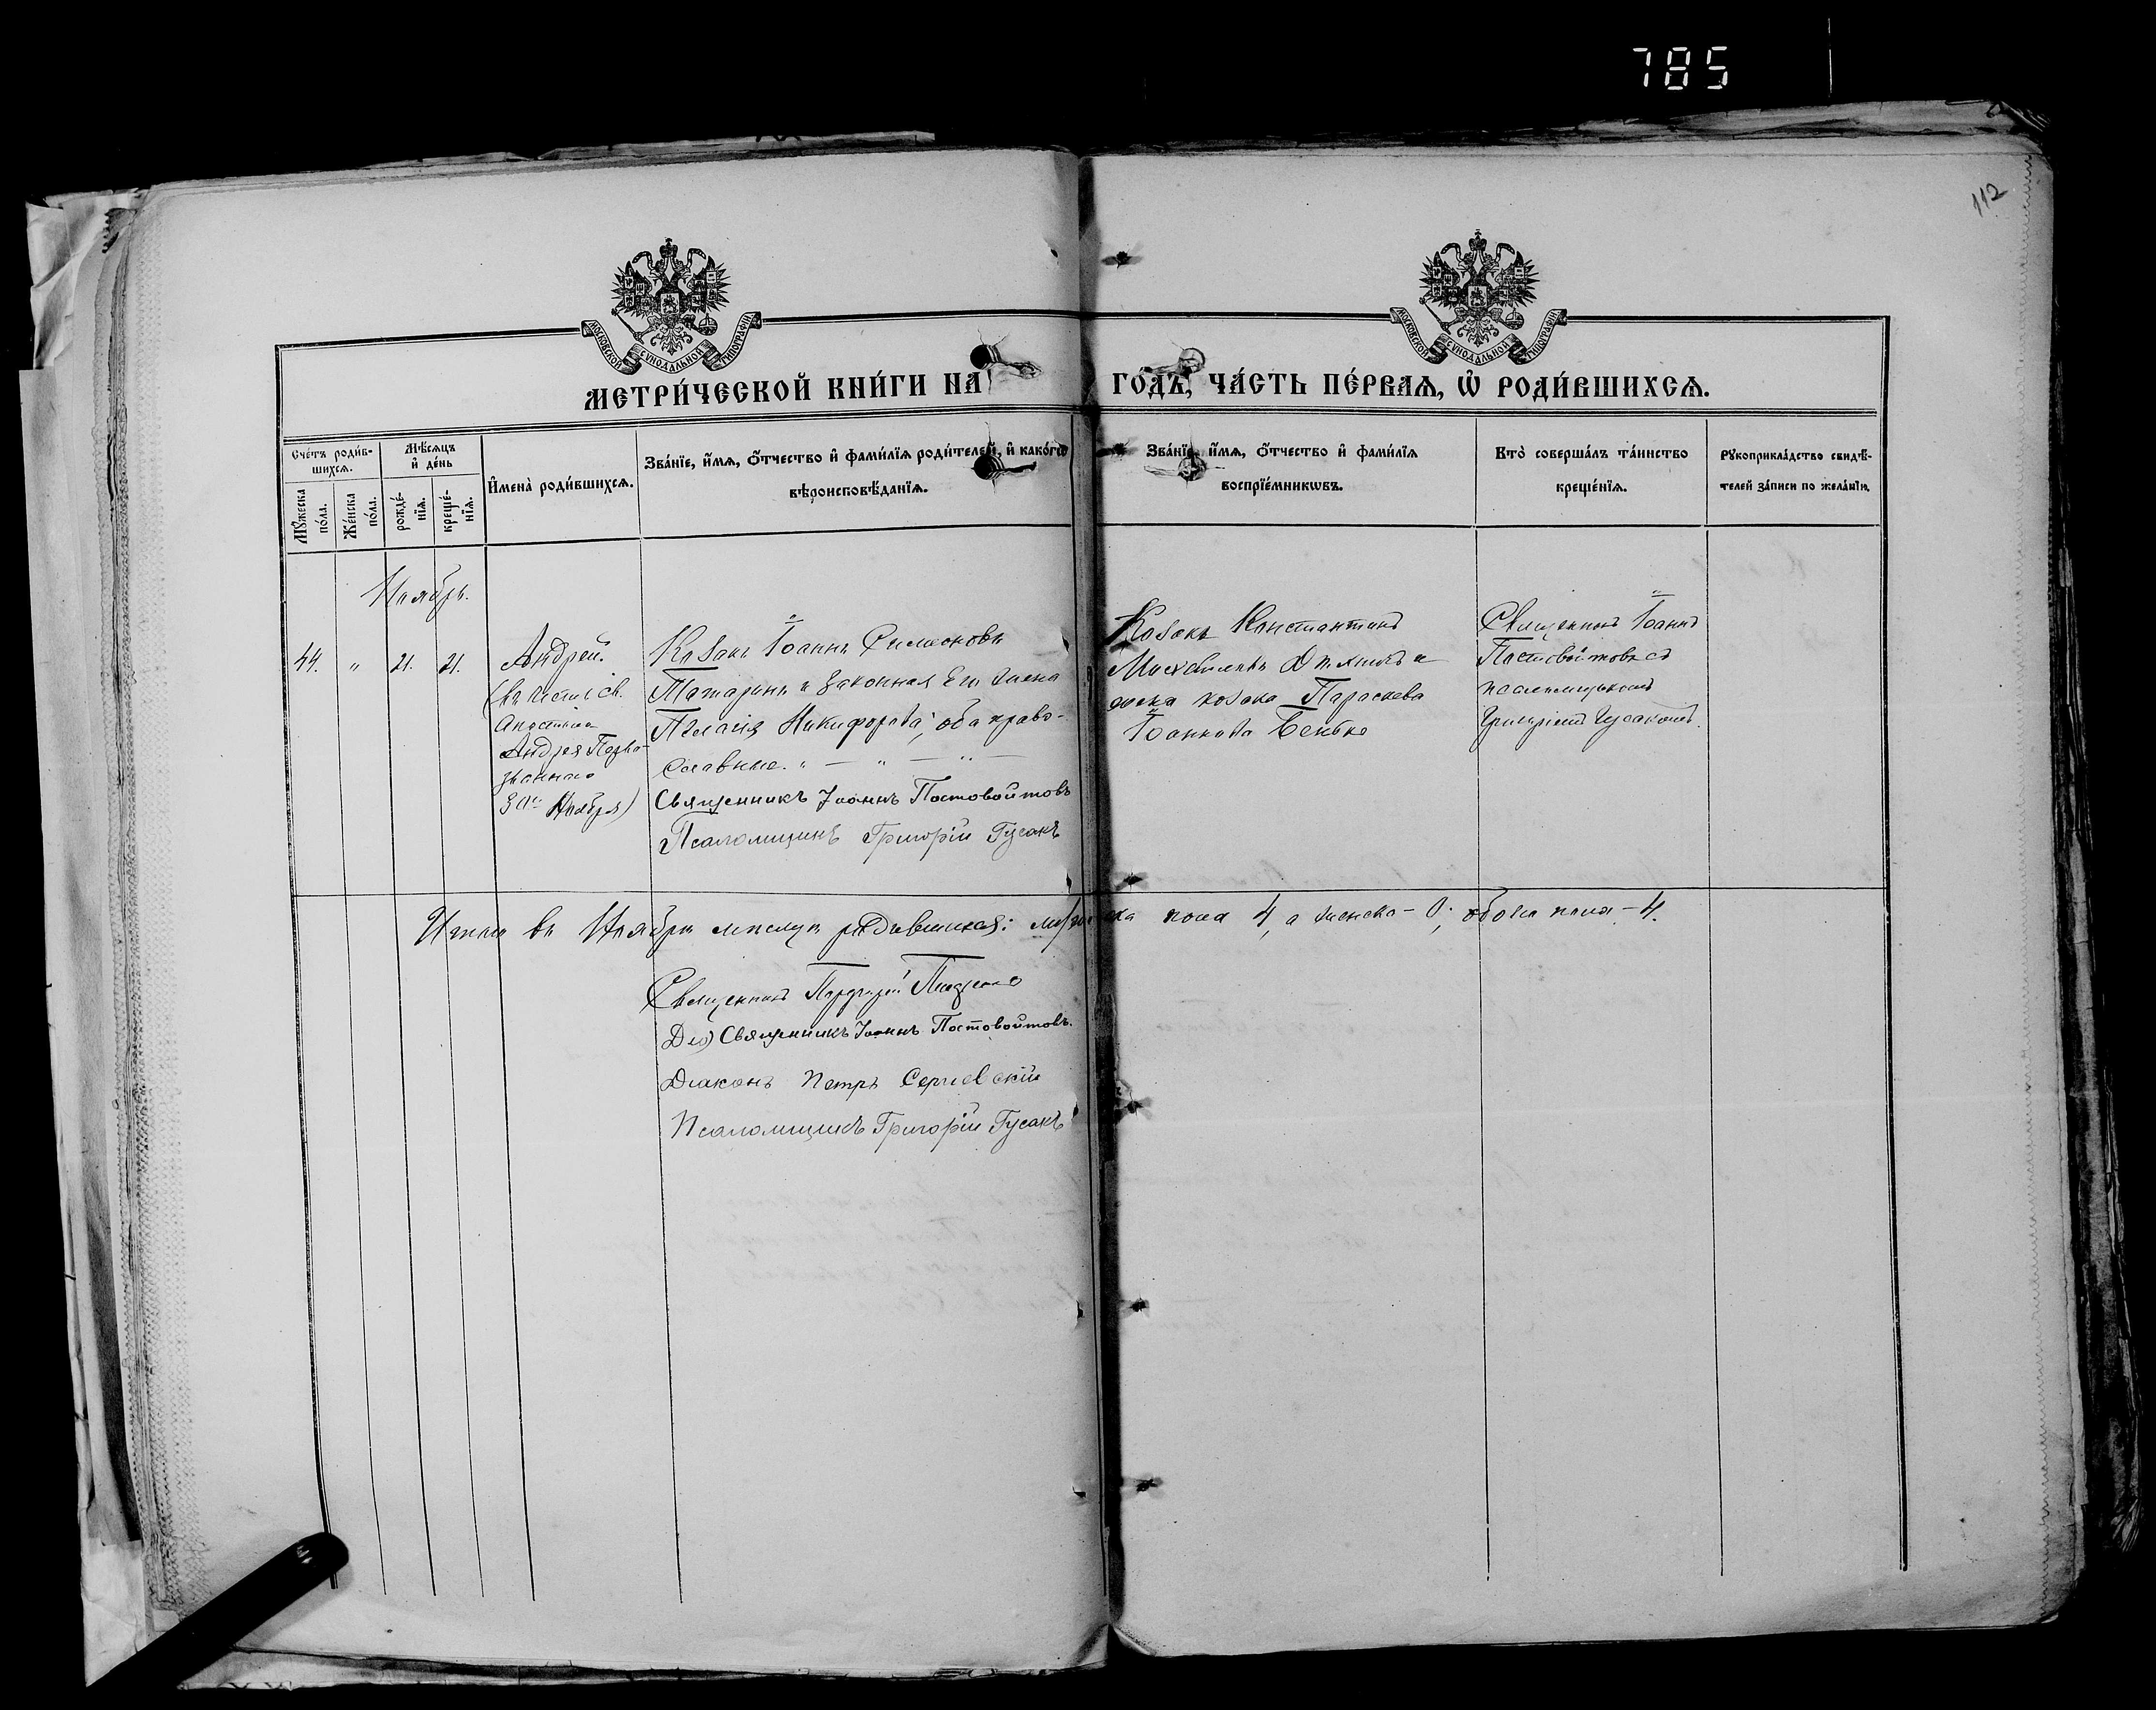 785
112
МОСКОВСКОЙ СѴНОДАЛЬНОЙ ТИПОГРАФІИ
МОСКОВСКОЙ СѴНОДАЛЬНОЙ ТИПОГРАФІИ
МЕТРИ́ЧЕСКОЙ КНИ́ГИ НА ГОДЪ, ЧА́СТЬ ПЕ́РВАѦ, Ѡ РОДИ́ВШИХСѦ.
Сче́тъ роди́в-
шихсѧ.
Мꙋ́жеска
по́ла.
Же́нска
по́ла.
Мѣ́сѧцъ
и де́нь
рожде́-
нїѧ.
креще́-
нїѧ.
Имена̀ роди́вшихсѧ.
Зва́нїе, и́мѧ, о́тчество и фами́лїѧ роди́телей, и како́гѡ
вѣроисповѣ́данїѧ.
Зва́нїе, и́мѧ, о́тчество и фами́лїѧ
воспрїе́мникѡвъ.
Кто̀ соверша́лъ та́инство
креще́нїѧ.
Рꙋкоприкла́дство свидѣ́-
телей за́писи по жела́нїю.
Ноябрь.
44. " 21. 21.
Андрей.
(въ честь св.
Апостола
Андрея Перво-
званнаго
30го Ноября)
Козакъ Іоаннъ Симеоновъ
Татаринъ и законная его жена
Пелагія Никифорова, оба право-
славные. " — " — " —
Священникъ Іоаннъ Постовойтовъ
Псаломщикъ Григорій Гусакъ
Козакъ Константинъ
и
жена козака Параскева
Іоаннова
Священникъ Іоаннъ
Постовойтовъ съ
псаломщикомъ
Григоріемъ Гусакомъ.
Итого въ Ноябрѣ мѣсяцѣ родившихся: мужеска пола 4, а женска – 0; обоего пола – 4.
Священникъ
Священникъ Іоаннъ Постовойтовъ.
Діаконъ Петръ Сергіевскій
Псаломщикъ Григорій Гусакъ